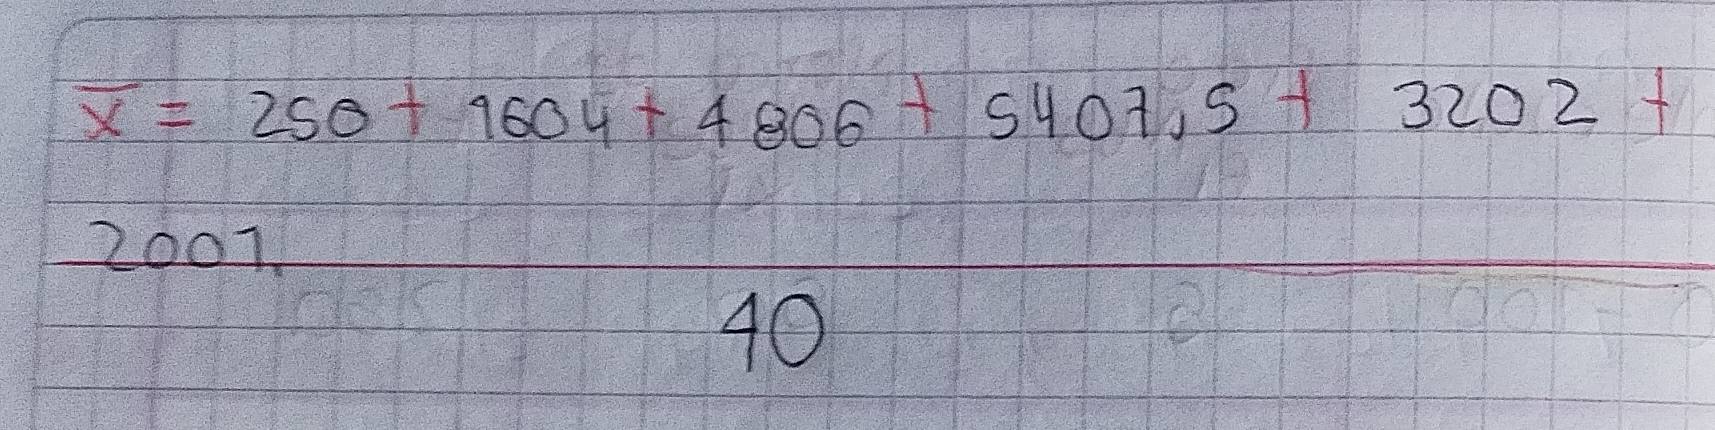 x̄ = 250 + 1604 + 4806 + 5407,5 + 3202 +
2001
40